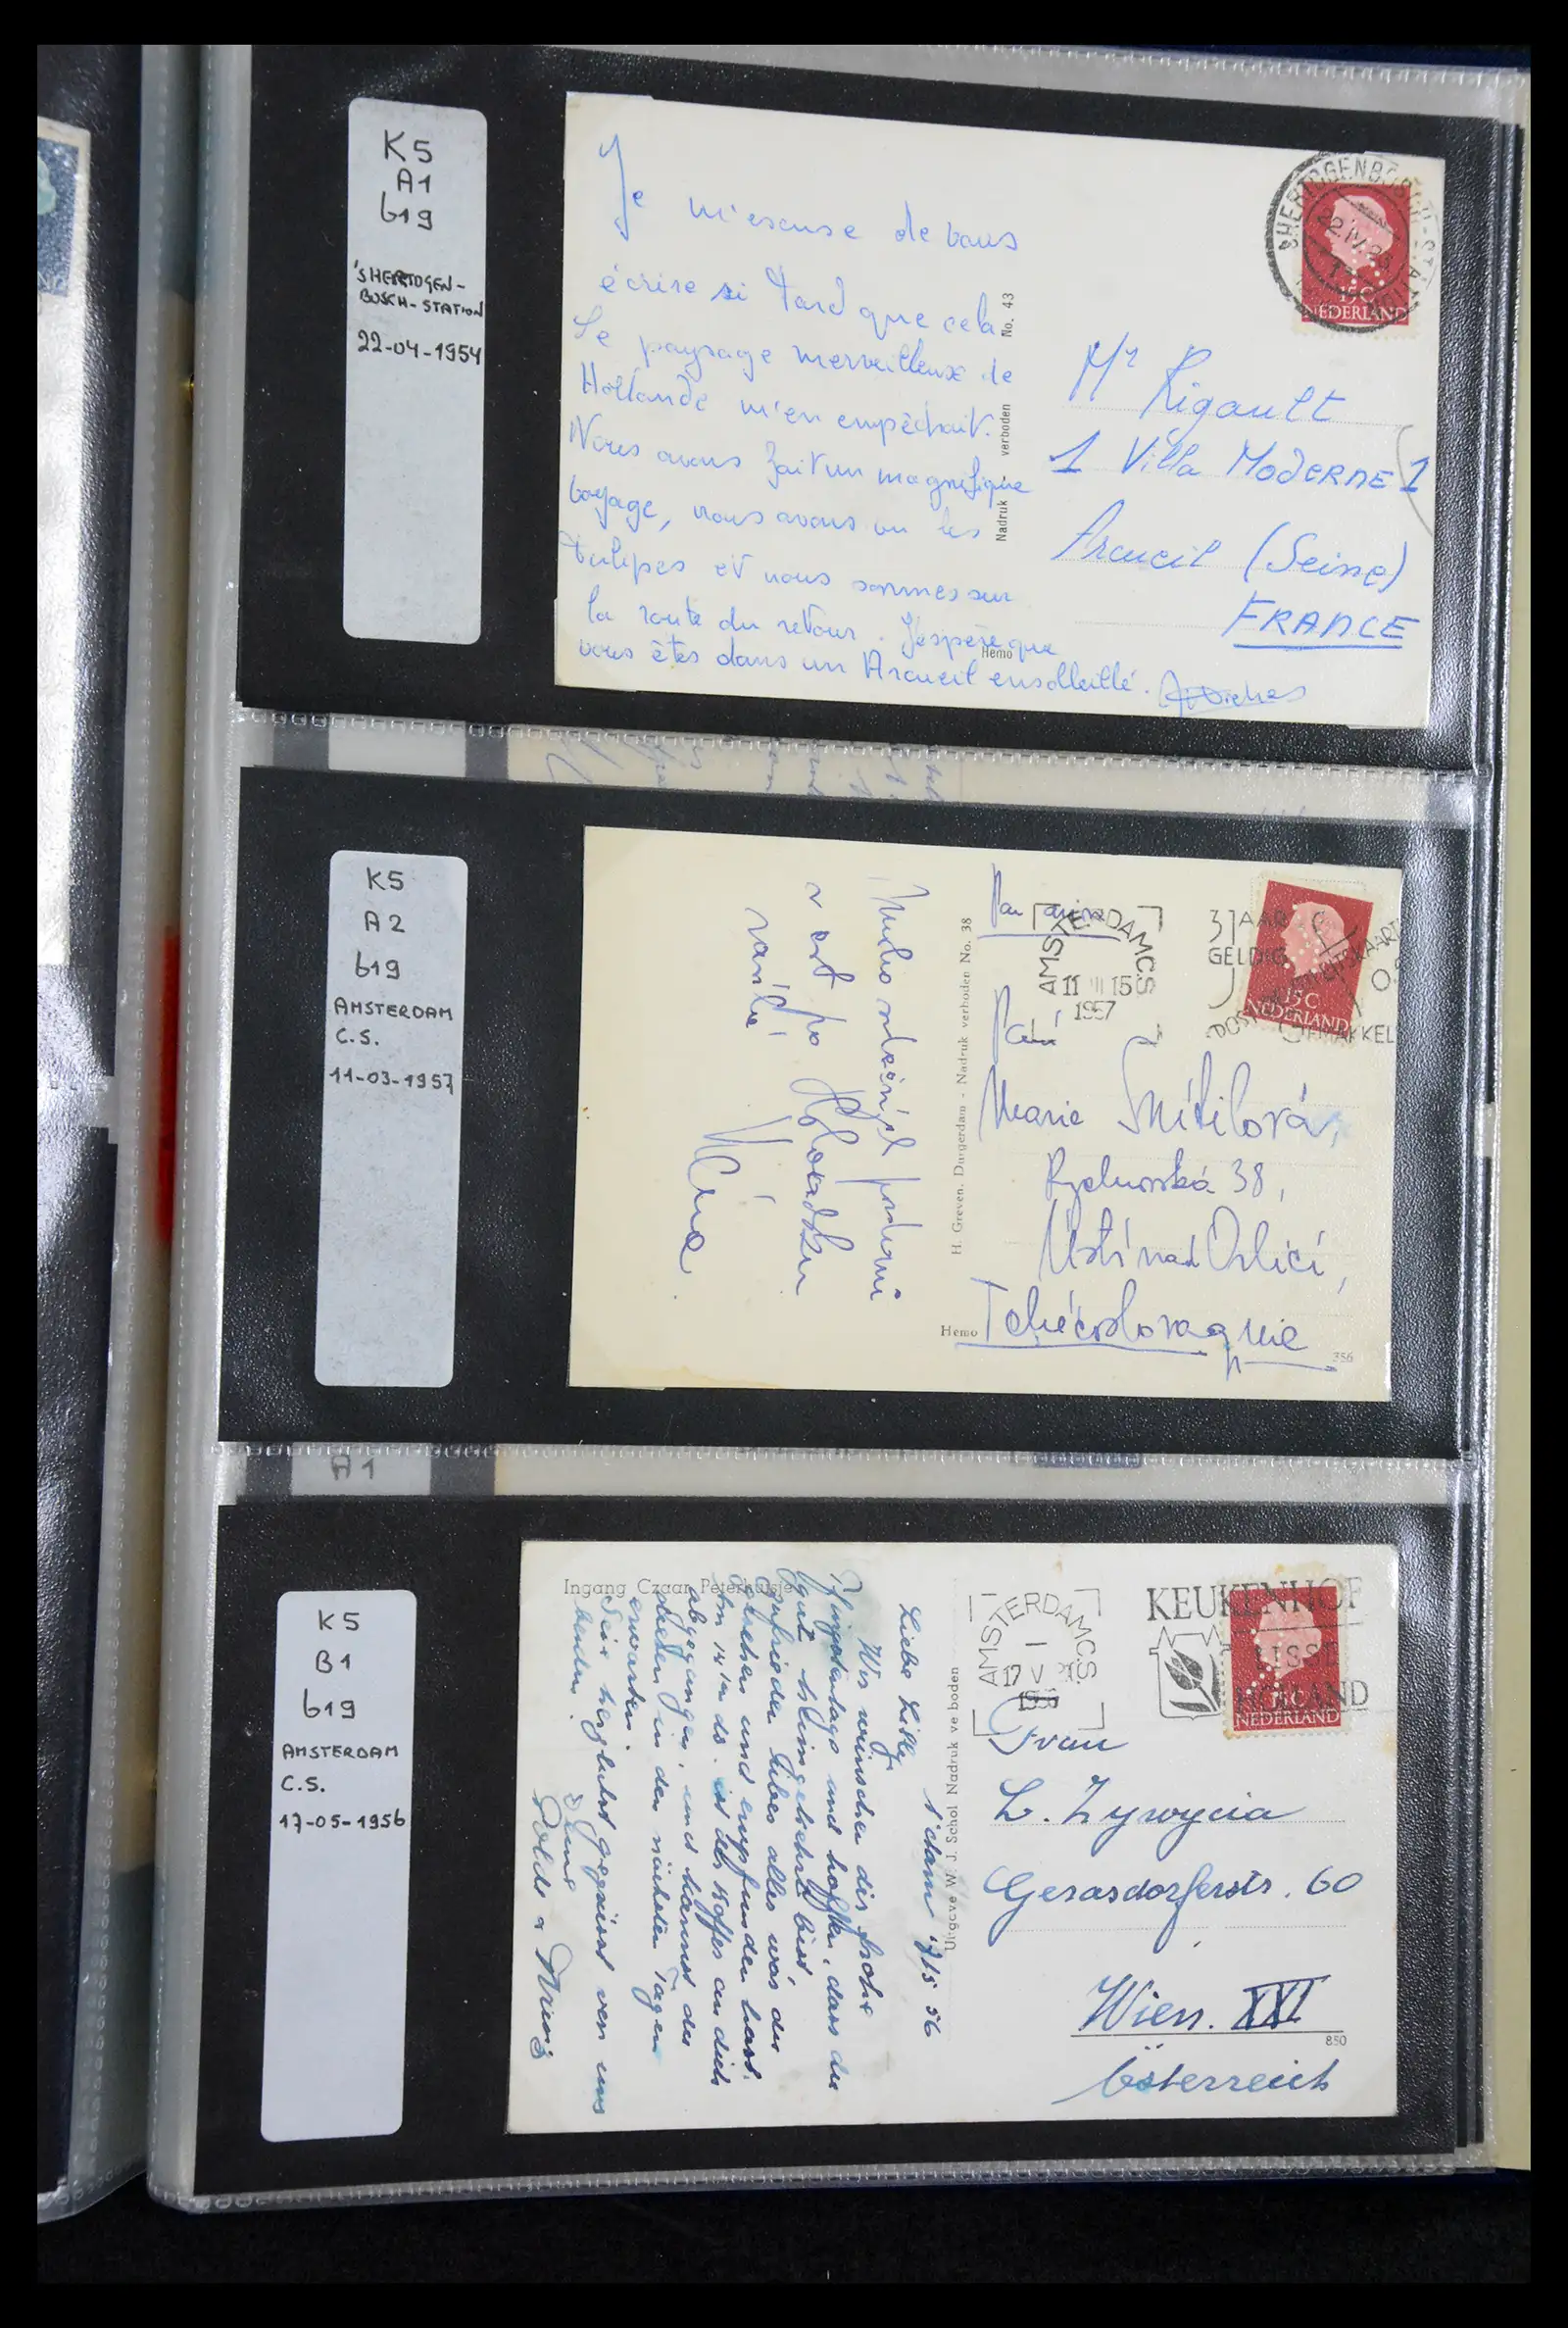 K5
A1
b19
'SHERTOGEN-
BOSCH-STATION
22-04-1954
Je m'escuse de vous
écrire si tard que cela
Le paysage merveilleux de
Hollande m'en empêchait.
Nous avons fait un magnifique
voyage, nous avons vu les
tulipes et nous sommes sur
la route du retour. J'espère que
vous êtes dans un Arcueil ensolleillé.
Nadruk verboden No. 43
Hemo
'SHERTOGENBOSCH-STATION
22.IV.54
15C
NEDERLAND
Mr Rigault
1 Villa MODERNE 1
Arcueil (Seine)
FRANCE
K5
A2
b19
AMSTERDAM
C.S.
11-03-1957
Mnoho srdečných
z cest po
Hemo
H. Greven. Durgerdam - Nadruk verboden No. 38
Par avion
AMSTERDAM C.S
11 III 15
1957
3 JAAR
GELDIG
15C
NEDERLAND
Paní
Marie
38,
Ústí nad Orlicí,
Tchécoslovaquie
356
A1
K5
B1
b19
AMSTERDAM
C.S.
17-05-1956
Ingang Czaar Peterhuisje
A'dam
Liebe Lilly
Wir wünschen dir frohe
Pfingsttage und hoffen, dass du
gut heimgekehrt bist,
zufrieden über alles was du
gesehen und empfunden hast.
Am 14ten ds. ist der Koffer an dich
abgegangen, und kannst du
diesen in den nächsten Tagen
erwarten.
Sei herzlichst gegrüsst von uns
beiden.
Deine
Uitgave W. J. Schol Nadruk verboden
AMSTERDAM C.S.
17 V
KEUKENHOF
LISSE
HOLLAND
15C
NEDERLAND
Frau
L. Zywycia
Gerasdorferstr. 60
Wien. XXI
Österreich
850